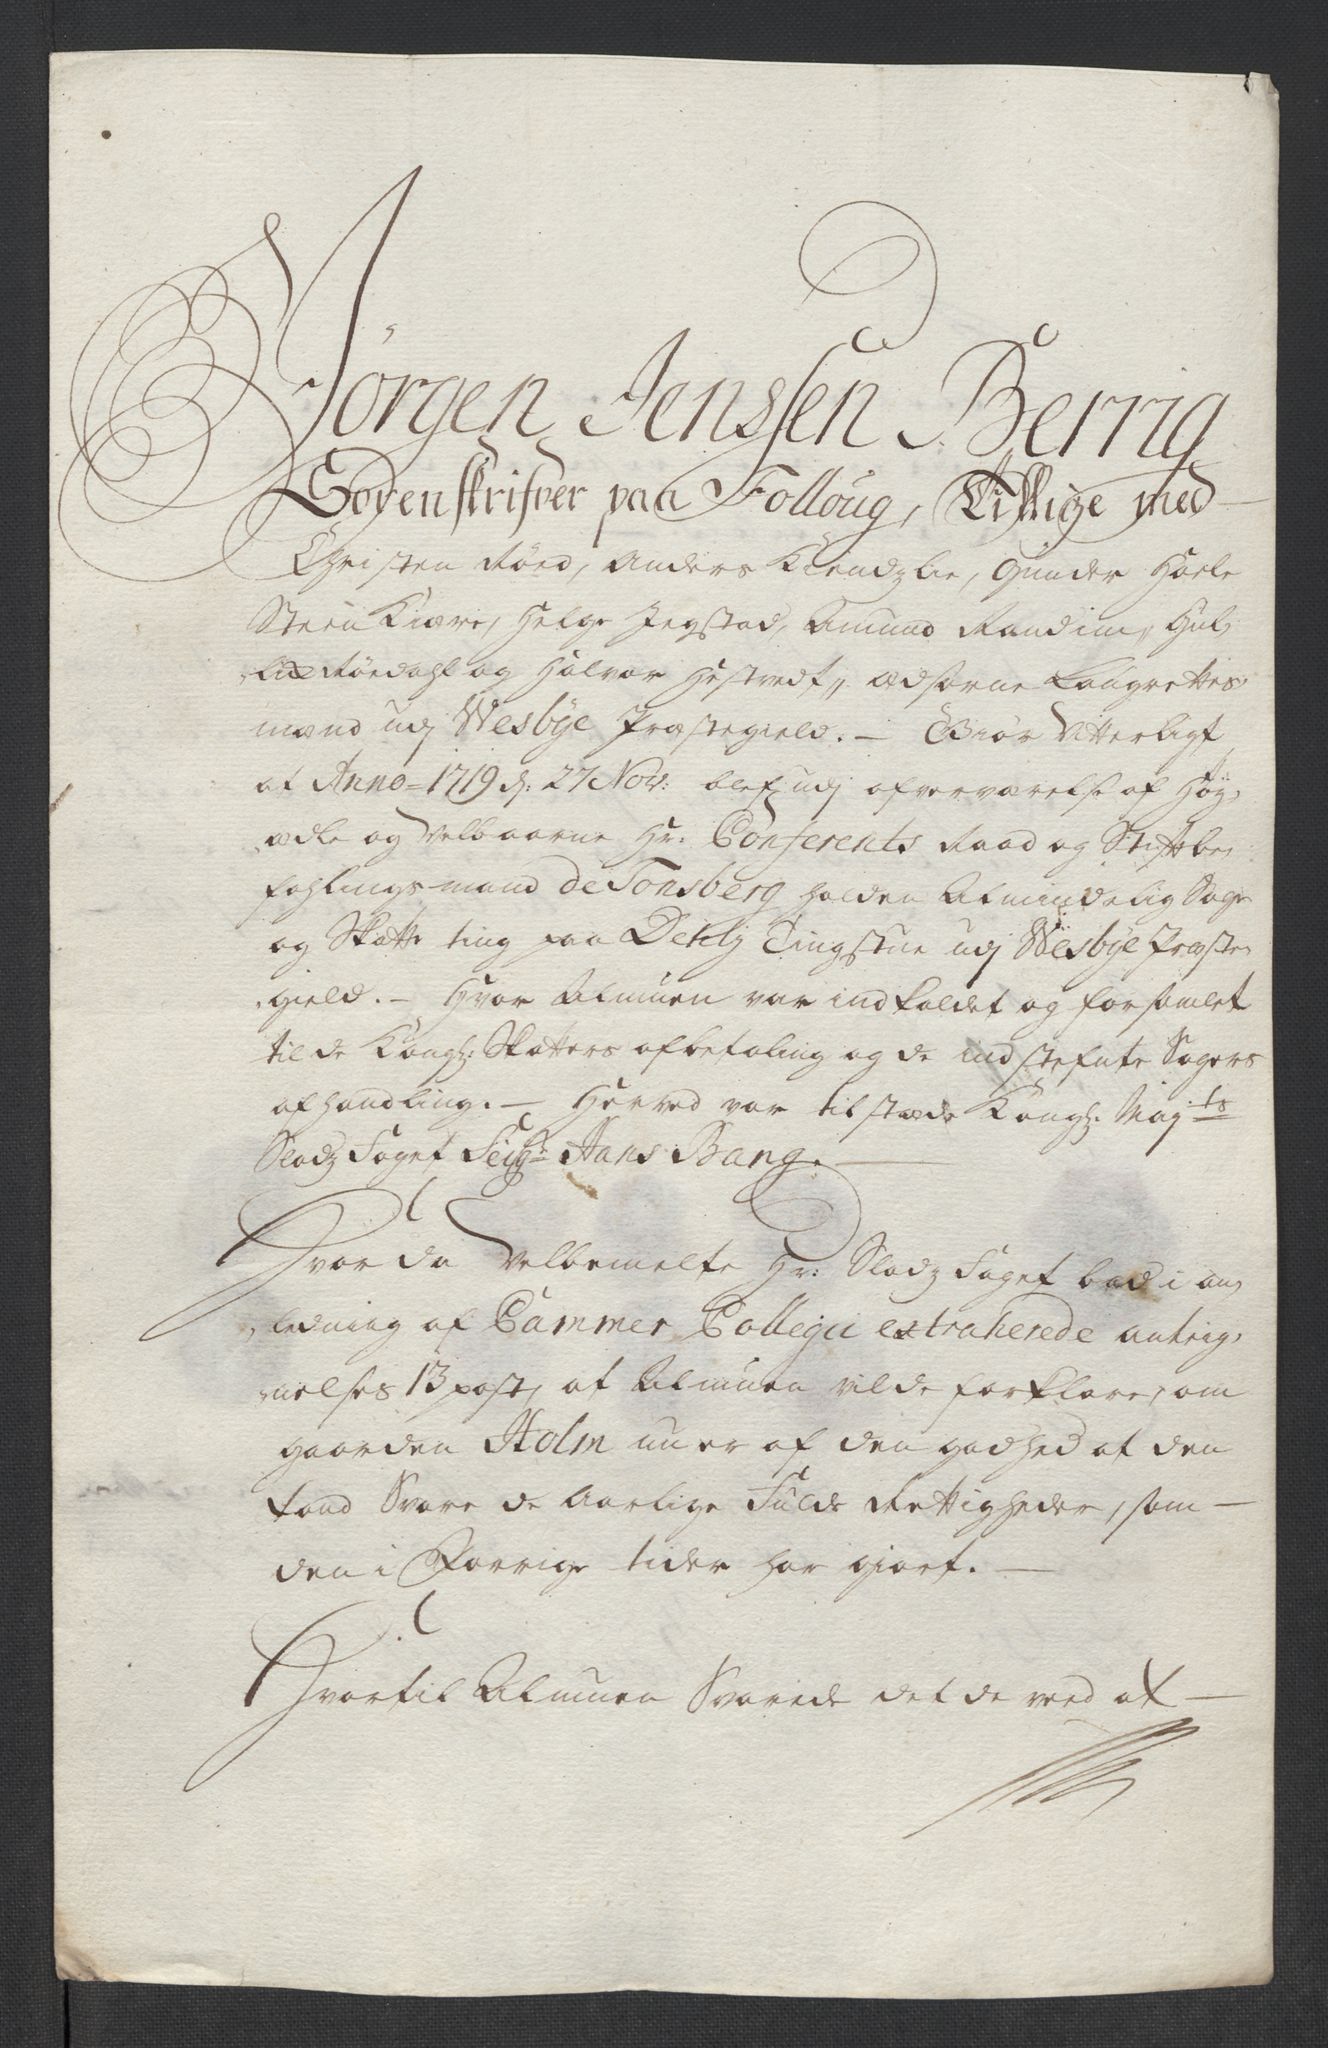 Jørgen Jenssen Berrig
Sorenskrifver paa Follöug, Tillige med
Christen Röed, Anders Kiendzlie, Gunder Hoele
Steen Kiære, Helge Jegstad, Amund Randim, Gul¸
¸lich Röedahl og Halvor Hestvedt, Edsorne Laugrettes¸
mænd udj Wesbÿe Præstegield. — Giör Vitterligt
at Anno = 1719 d: 27 Nov: blef udj ofverværelse af Höy¸
¸ædle og Velbaarne Hr: Conferents Raad og Stiftbe¸
fahlings mand de Tonsberg holden Almindelig Sage
og Skatte ting paa Dehlj Tingstue udj Wesbÿe Præste¸
¸gield. — Hvor Almuen var indkaldet og forsamlet
til de Kongl: Skatters afbetaling og de indstefnte Sagers
afhandling. — Herved var tilstæde Kongl: Maj:ts
Slodz Foget Seigr Hans Bang. —
Hvor da Velbemelte Hr: Slodz Foget bad i an¸
¸ledning af Cammer Collegii extraherede anteig¸
¸nelses 13 post, at Almuen vilde forklare, om
gaarden Holm nu er af den godhed at den
kand Svare de Aarlige Fulde Rettigheder, som —
den i Forrige tider har giort. —
Hvortil Almuen Svarede det de veed at —